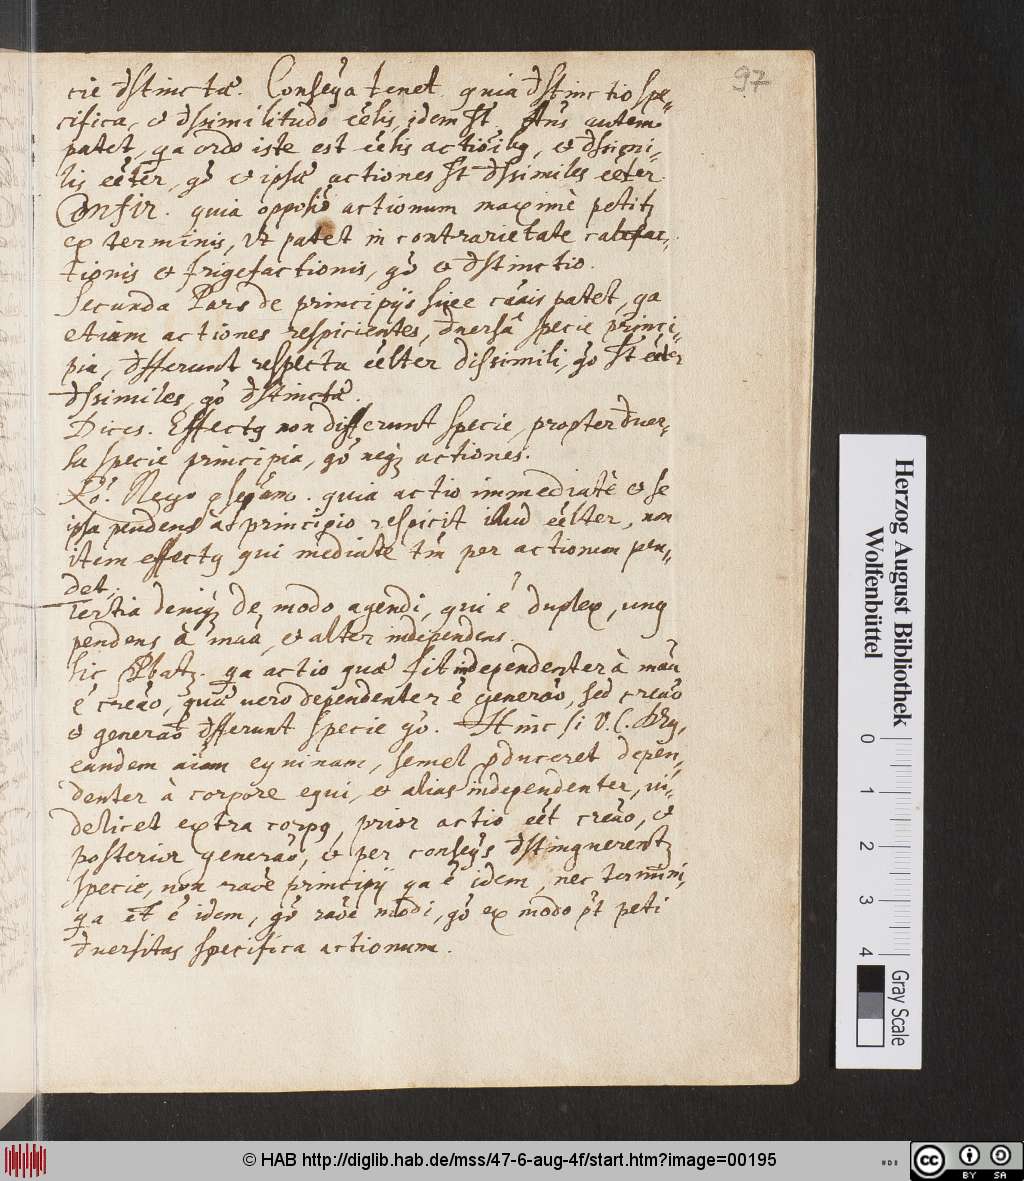 97
cie đstinctæ. Conseq̃a tenet. quia đstinctio spe-
cifica, et đssimilitudo eẽlis idem st̃. Añs autem
patet, qa ordo iste est eẽlis actioĩbq, et đssimi-
lis eẽter, gõ et ipsæ actiones st̃ đssimiles eẽter.
Confir. quia opposiõ actionum maximè petitꝫ
ex terminis, vt patet in contrarietate calefac-
tionis et frigefactionis, gõ et đstinctio.
Secunda Pars de principijs siue cãis patet, qa
etiam actiones respicientes, đuersa specie princi-
pia, đfferunt respectu eẽlter dissimili, gõ st̃ eẽter
đssimiles, gõ đstinctæ.
Dices. Effectq non differunt specie, propter đuer-
sa specie principia, gõ neqꝫ actiones.
Rõ. Nego qseq̃am. quia actio immediatè et se
ipsa pendens à principio respicit illud eẽlter, non
item effectq qui mediate tm̃ per actionem pen-
det.
Tertia deniqꝫ de modo agendi, qui ẽ duplex, unq
pendens à maã, et alter independens.
Sic ꝓbatꝫ. qa actio quæ fit independenter à maã
ẽ creaõ, quæ uero dependenter ẽ generaõ, sed creaõ
et generaõ đfferunt specie gõ. Hinc si V.C. Dsq,
eandem aĩam equinam, semel ꝓduceret depen-
denter à corpore equi, et alias independenter, ui-
delicet extra corpq, prior actio eẽt creaõ, et
posterior generaõ, et per conseqs đstinguerentꝫ
specie, non raõe principij qa ẽ idem, nec termini,
qa et̃ ẽ idem, gõ raõe modi, gõ ex modo põt peti
đuersitas specifica actionum.
Herzog August Bibliothek
Wolfenbüttel
0 1 2 3 4
Gray Scale
© HAB http://diglib.hab.de/mss/47-6-aug-4f/start.htm?image=00195
cc BY SA